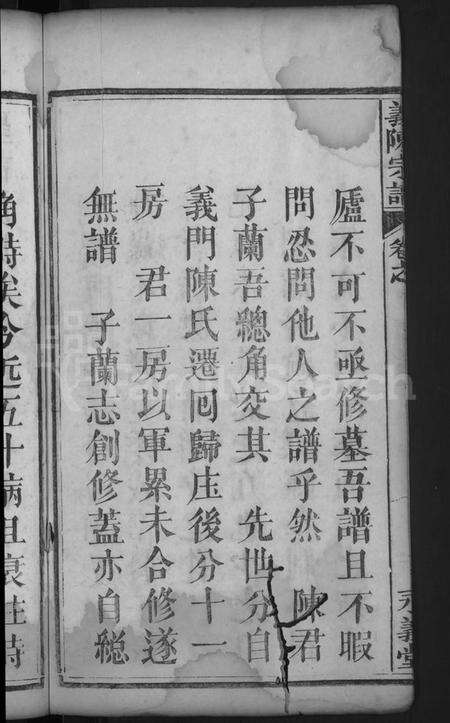 義陳宗譜
卷之
永義堂
廬不可不亟修墓吾譜且不暇
問忍問他人之譜乎然　陳君
子蘭吾總角交其　先世分自
義門陳氏遷囘歸庄後分十一
房　君一房以軍累未合修遂
無譜　子蘭志創修蓋亦自總
角時矣今近五十病且衰往時